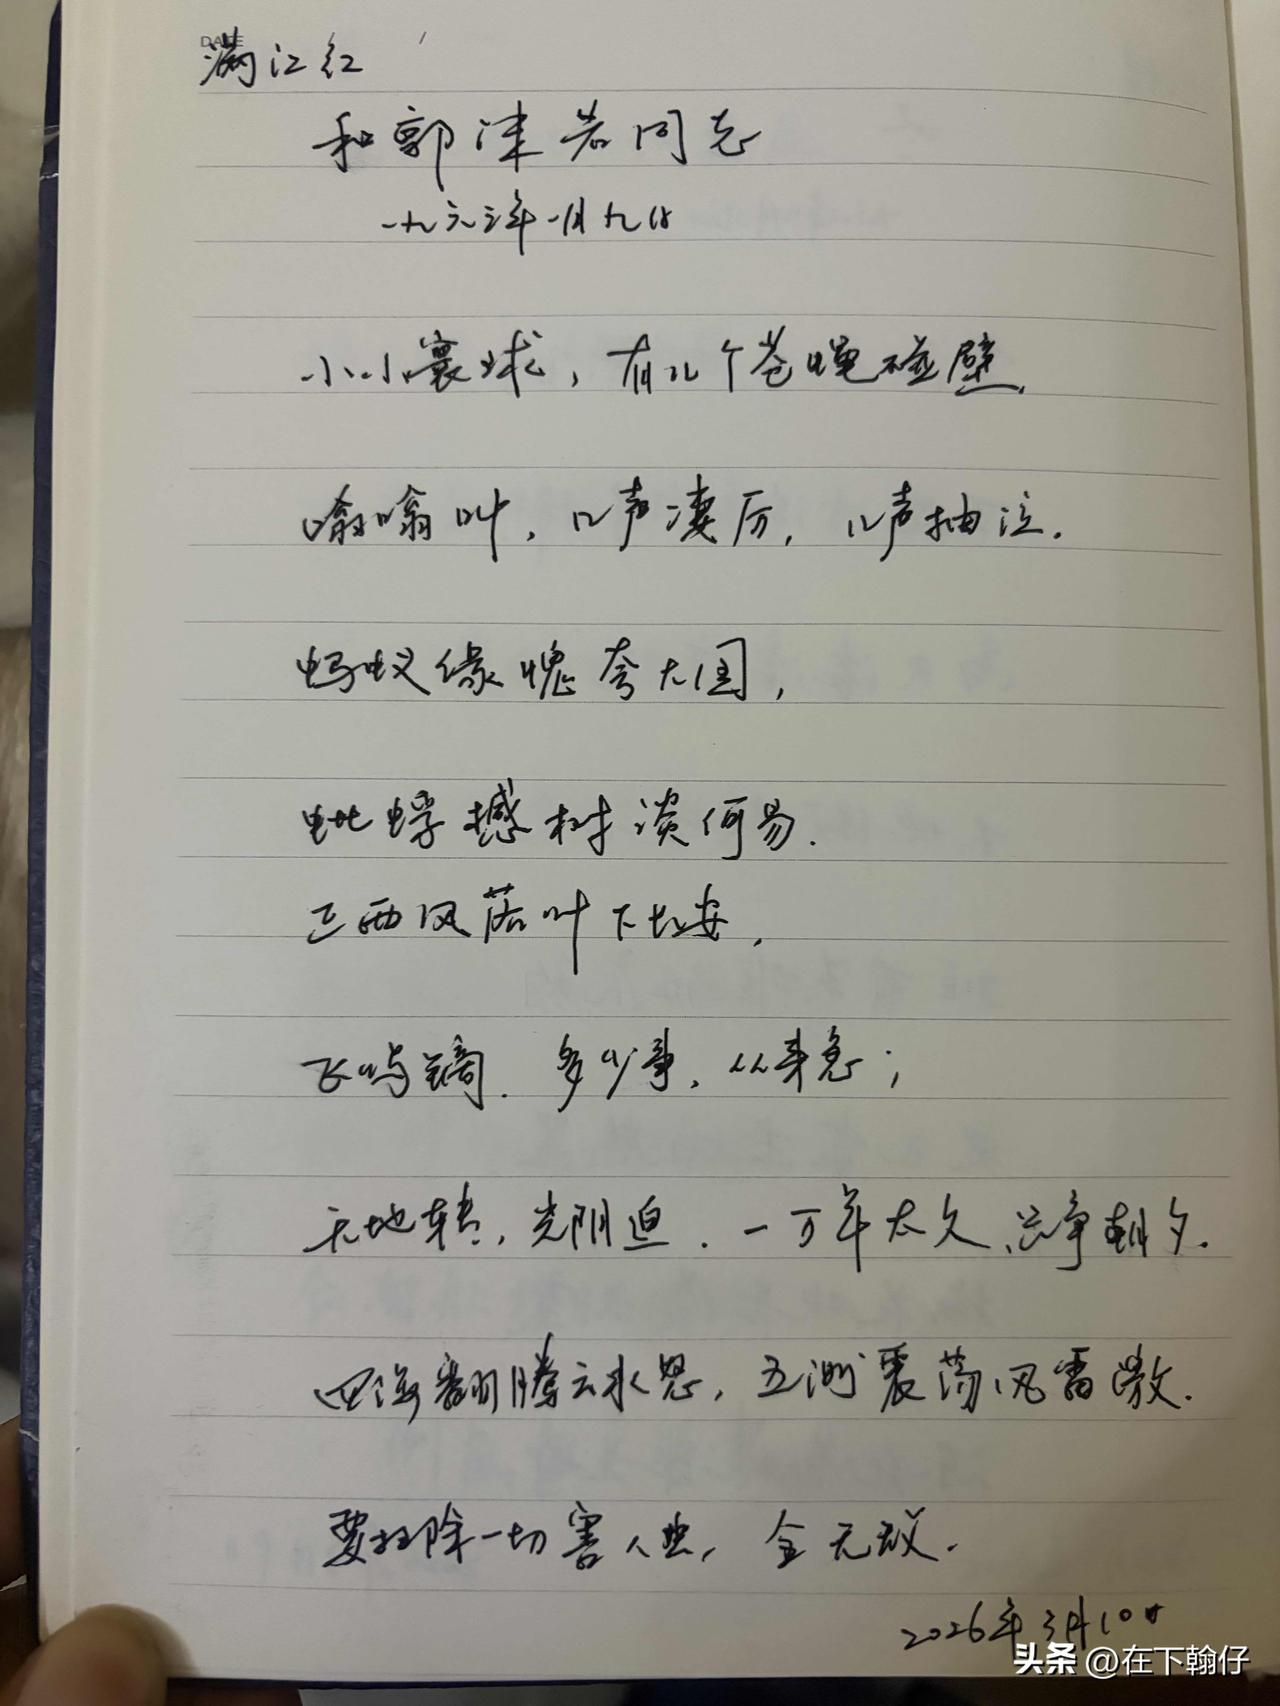 DATE
满江红
和郭沫若同志
一九六三年一月九日
小小寰球,有几个苍蝇碰壁.
嗡嗡叫,几声凄厉,几声抽泣.
蚂蚁缘愧夸大国,
蚍蜉撼树谈何易.
正西风落叶下长安,
飞鸣镝.多少事,从来急;
天地转,光阴迫.一万年太久,只争朝夕.
四海翻腾云水怒,五洲震荡风雷激.
要扫除一切害人虫,全无敌.
2026年3月10日
头条 @在下翰仔